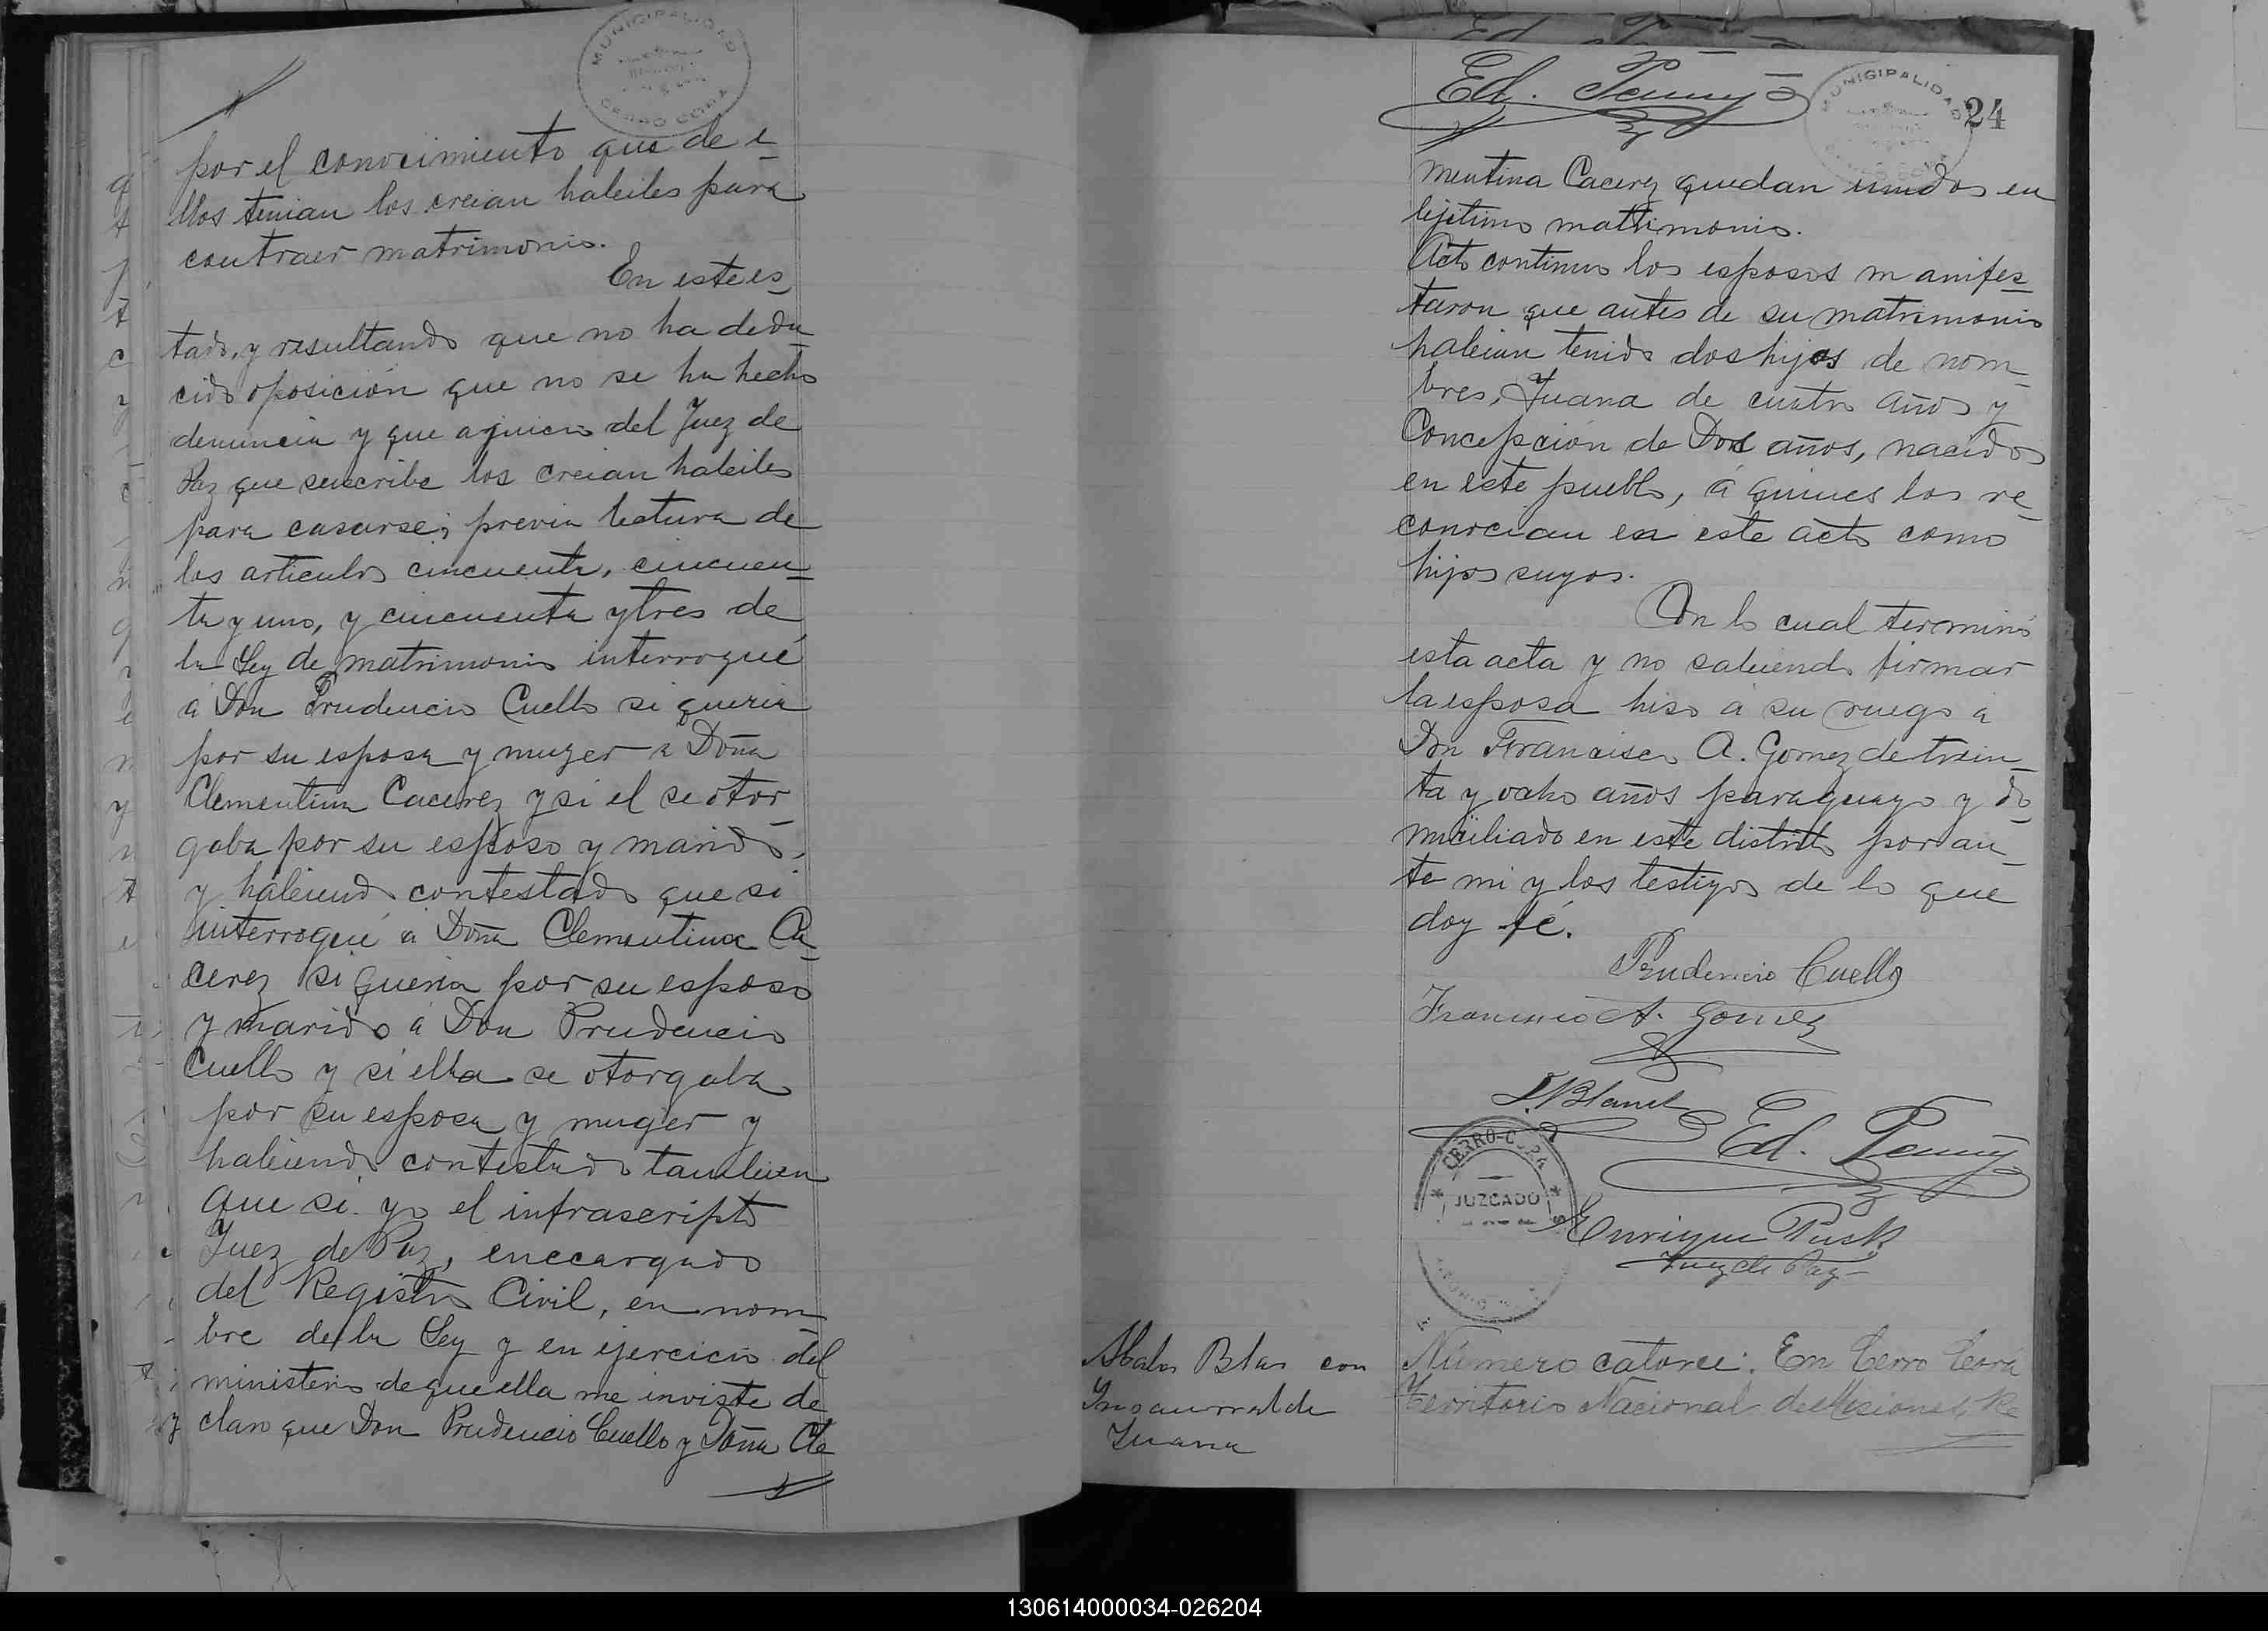 MUNICIPALIDAD
CERRO CORA
por el conocimiento que de e-
llos tenian los creian habiles para
contraer matrimonio.
En este es-
tado, y resultando que no ha dedu-
cido oposición que no se ha hecho
denuncia y que a juicio del Juez de
Paz que suscribe los creian habiles
para casarse; previa lectura de
los articulos cincuenta, cincuen-
ta y uno, y cincuenta y tres de
la Ley de matrimonio interrogué
á Don Prudencio Cuello si queria
por su esposa y muger a Doña
Clementina Cacerez y si el se otor-
gaba por su esposo y marido,
y habiendo contestado que si
interrogué á Doña Clementina Ca-
cerez si queria por su esposo
y marido á Don Prudencio
Cuello y si ella se otorgaba
por su esposa y muger y
habiendo contestado tambien
que si. yo el infrascripto
Juez de Paz, encargado
del Registro Civil, en nom-
bre de la Ley y en ejercicio del
ministerio de que ella me inviste de
claro que Don Prudencio Cuello y Doña Cle
Ed. Penny
MUNICIPALIDAD
24
mentina Cacerez quedan unidos en
lejitimo matrimonio.
Acto continuo los esposos manifes-
taron que antes de su matrimonio
habian tenido dos hijos de nom-
bres, Juana de cuatro años y
Concepción de Dos años, nacidos
en este pueblo, á quines los re-
conocian en este acto como
hijos suyos.
Con lo cual terminó
esta acta y no sabiendo firmar
la esposa hiso á su ruego á
Don Francisco A. Gomez de trein-
ta y ocho años paraguayo y do-
miciliado en este distrito por an-
te mi y los testigos de lo que
doy fé.
Prudencio Cuello
Francisco A. Gomez
Ed. Penny
CERRO-CORA
JUZGADO
Enrique
Juez de Paz
Blas con
Insaurralde
Juana
Número catorce: En Cerro Corá
Territorio Nacional de Misiones, Re
130614000034-026204